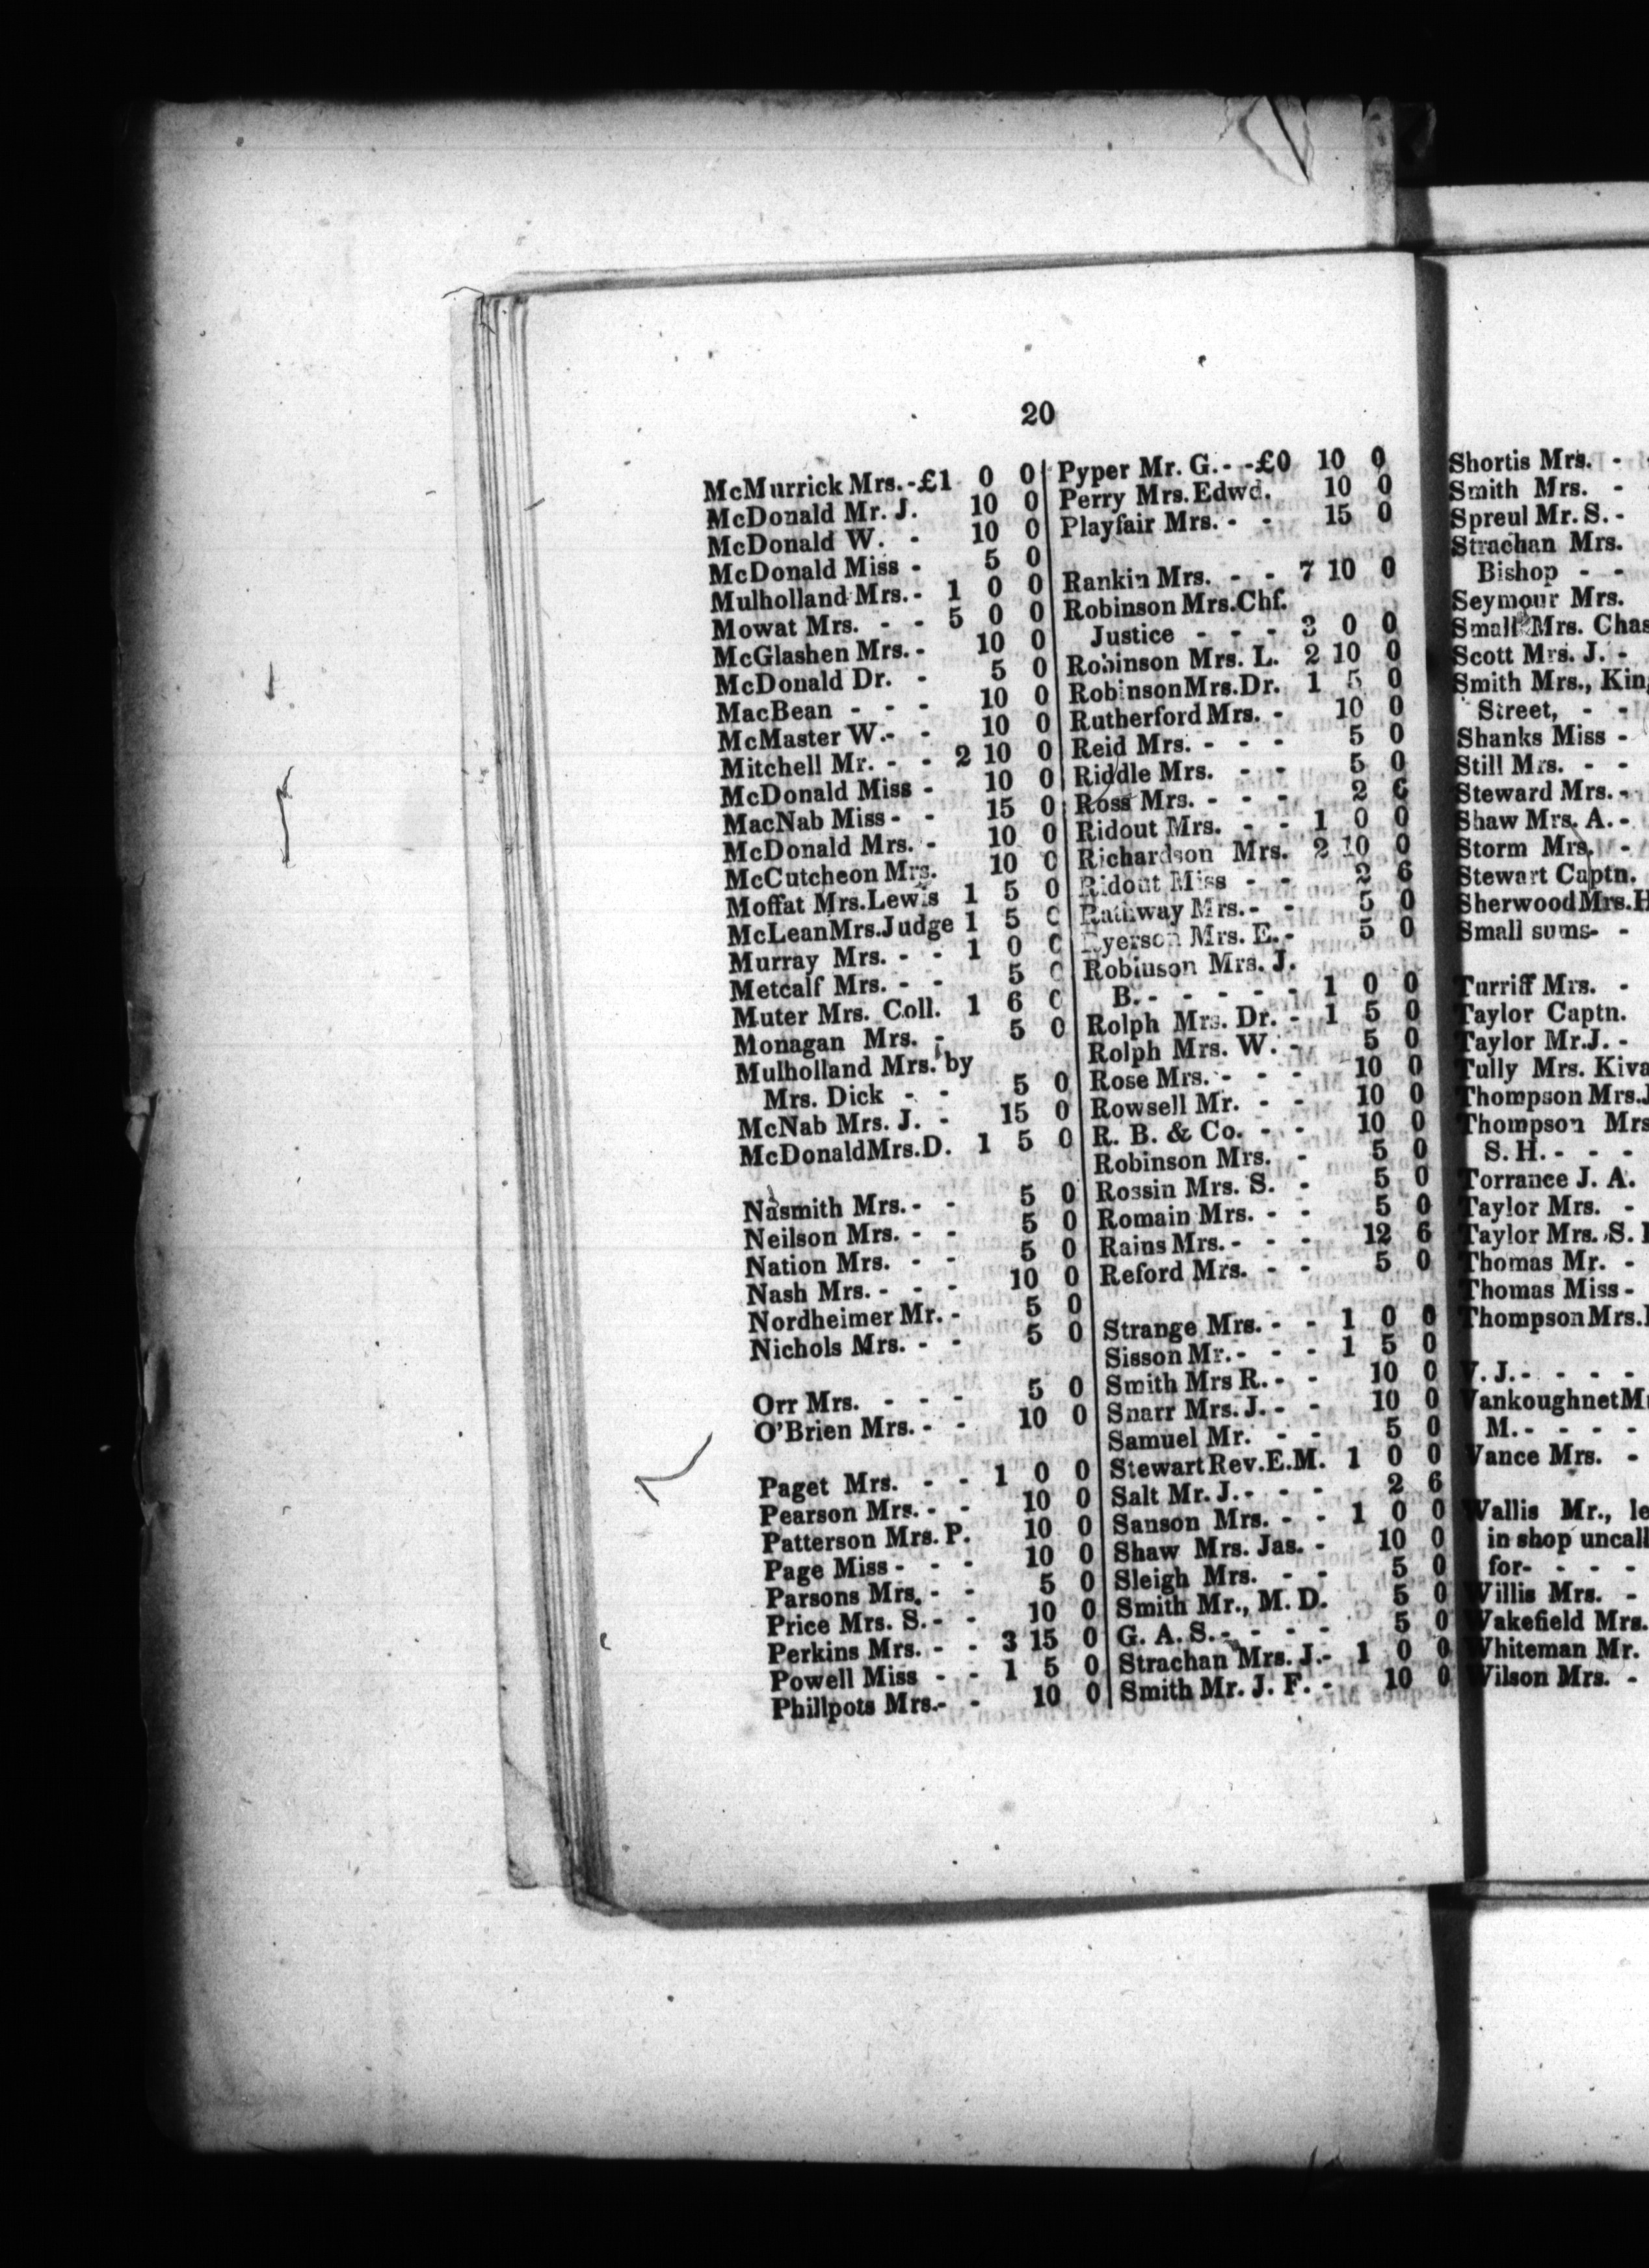 20
McMurrick Mrs. - £1 0 0
McDonald Mr. J. 10 0
McDonald W. - 10 0
McDonald Miss - 5 0
Mulholland Mrs. - 1 0 0
Mowat Mrs. - - 5 0 0
McGlashen Mrs. - 10 0
McDonald Dr. - 5 0
MacBean - - - 10 0
McMaster W. - - 10 0
Mitchell Mr. - - 2 10 0
McDonald Miss - 10 0
MacNab Miss - - 15 0
McDonald Mrs. - 10 0
McCutcheon Mrs. 10 0
Moffat Mrs. Lewis 1 5 0
McLean Mrs. Judge 1 5 0
Murray Mrs. - - 1 0 0
Metcalf Mrs. - - 5 0
Muter Mrs. Coll. 1 6 0
Monagan Mrs. - 5 0
Mulholland Mrs. by
Mrs. Dick - - 5 0
McNab Mrs. J. - 15 0
McDonald Mrs. D. 1 5 0
Nasmith Mrs. - - 5 0
Neilson Mrs. - - 5 0
Nation Mrs. - - 5 0
Nash Mrs. - - - 10 0
Nordheimer Mr. - 5 0
Nichols Mrs. - - 5 0
Orr Mrs. - - - 5 0
O'Brien Mrs. - - 10 0
Paget Mrs. - - 1 0 0
Pearson Mrs. - - 10 0
Patterson Mrs. P. 10 0
Page Miss - - - 10 0
Parsons Mrs. - - 5 0
Price Mrs. S. - - 10 0
Perkins Mrs. - - 3 15 0
Powell Miss - - 1 5 0
Phillpots Mrs. - - 10 0
Pyper Mr. G. - - £0 10 0
Perry Mrs. Edwd. 10 0
Playfair Mrs. - - 15 0
Rankin Mrs. - - 7 10 0
Robinson Mrs. Chf.
Justice - - - 3 0 0
Robinson Mrs. L. 2 10 0
Robinson Mrs. Dr. 1 5 0
Rutherford Mrs. - 10 0
Reid Mrs. - - - 5 0
Riddle Mrs. - - 5 0
Ross Mrs. - - - 2 6
Ridout Mrs. - - 1 0 0
Richardson Mrs. 2 10 0
Ridout Miss - - 2 6
Mrs. - - 5 0
Ryerson Mrs. E. - 5 0
Robinson Mrs. J.
B. - - - - - 1 0 0
Rolph Mrs. Dr. - 1 5 0
Rolph Mrs. W. - 5 0
Rose Mrs. - - - 10 0
Rowsell Mr. - - 10 0
R. B. & Co. - - 10 0
Robinson Mrs. - 5 0
Rossin Mrs. S. - 5 0
Romain Mrs. - - 5 0
Rains Mrs. - - - 12 6
Reford Mrs. - - 5 0
Strange Mrs. - - 1 0 0
Sisson Mr. - - - 1 5 0
Smith Mrs R. - - 10 0
Snarr Mrs. J. - - 10 0
Samuel Mr. - - 5 0
Stewart Rev. E. M. 1 0 0
Salt Mr. J. - - - 2 6
Sanson Mrs. - - 1 0 0
Shaw Mrs. Jas. - 10 0
Sleigh Mrs. - - 5 0
Smith Mr., M. D. 5 0
G. A. S. - - - - 5 0
Strachan Mrs. J. - 1 0 0
Smith Mr. J. F. - 10 0
Shortis Mrs. -
Smith Mrs. -
Spreul Mr. S. -
Strachan Mrs.
Bishop - -
Seymour Mrs.
Small Mrs. Chas
Scott Mrs. J. -
Smith Mrs., King
Street, - -
Shanks Miss -
Still Mrs. - -
Steward Mrs. -
Shaw Mrs. A. -
Storm Mrs. -
Stewart Captn.
Sherwood Mrs. H
Small sums - -
Turriff Mrs. -
Taylor Captn.
Taylor Mr. J. -
Tully Mrs. Kiva
Thompson Mrs. J
Thompson Mrs
S. H. - - -
Torrance J. A.
Taylor Mrs. -
Taylor Mrs. S.
Thomas Mr. -
Thomas Miss -
Thompson Mrs.
V. J. - - - -
Vankoughnet M
M. - - - -
Vance Mrs. -
Wallis Mr., le
in shop uncall
for - - - -
Willis Mrs. -
Wakefield Mrs.
Whiteman Mr.
Wilson Mrs. -